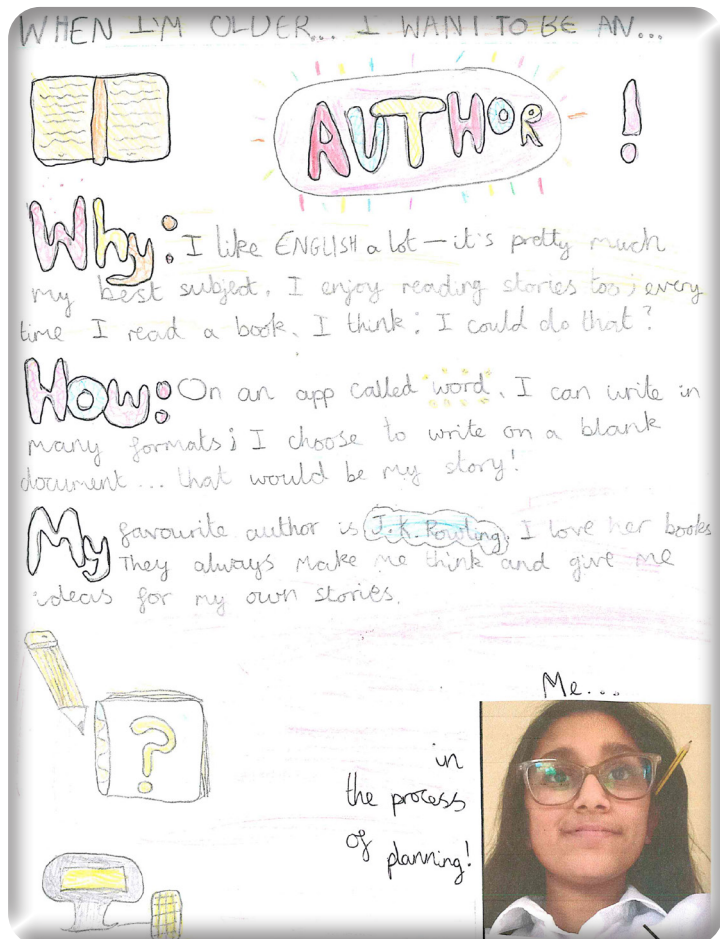 WHEN I'M OLDER... I WANT TO BE AN...
AUTHOR!
Why: I like ENGLISH a lot – it's pretty much
my best subject. I enjoy reading stories too; every
time I read a book, I think: I could do that?
How: On an app called word. I can write in
many formats; I choose to write on a blank
document... that would be my story!
My favourite author is J.K. Rowling. I love her books
They always make me think and give me
ideas for my own stories.
?
Me...
in
the process
of
planning!